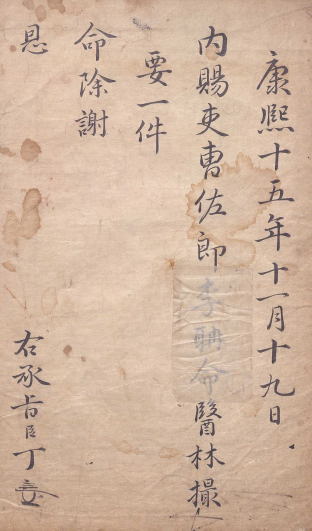 康熙十五年十一月十九日
內賜吏曹佐郎李聃命醫林撮
要一件
命除謝
恩
右承旨臣丁